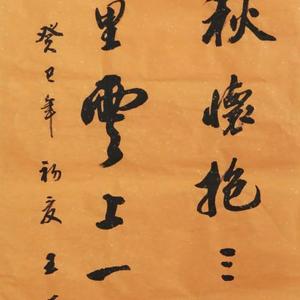 秋懷抱三
里雲上一
癸巳年初夏王